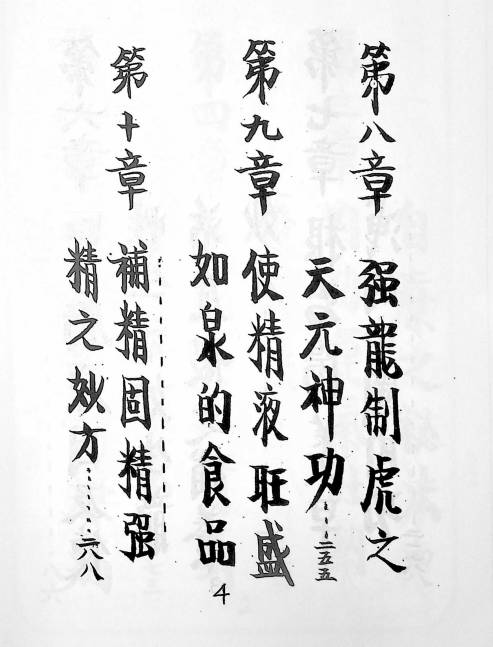 第八章 强龍制虎之
天元神功……二五五
第九章 使精液旺盛
如泉的食品
第十章 補精固精强
精之妙方……二六八
4